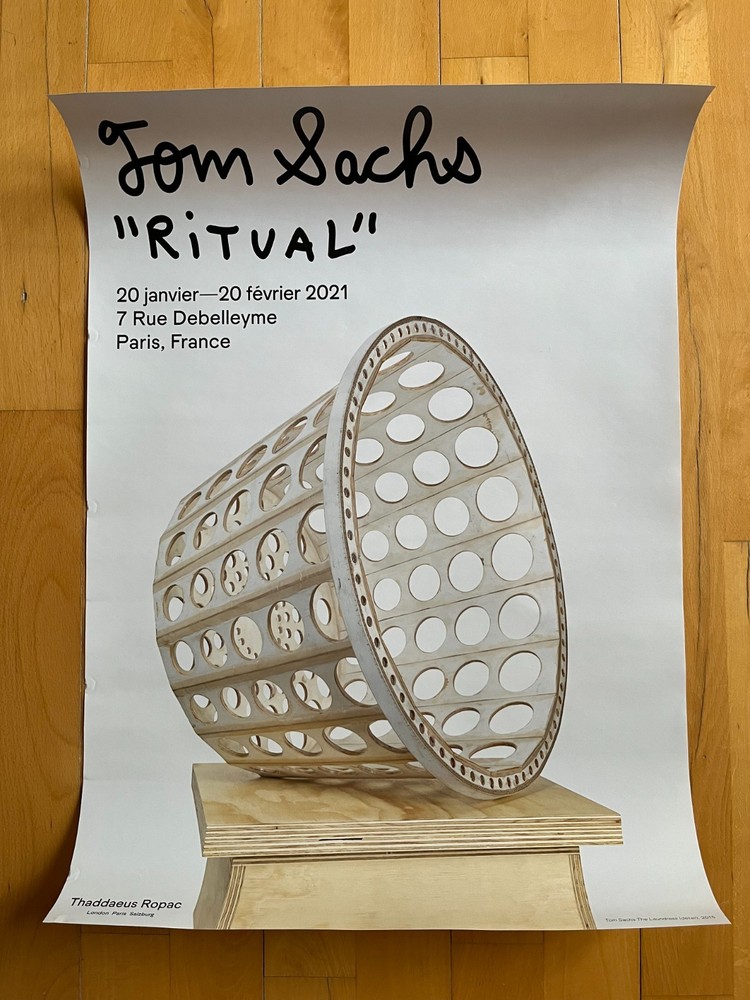 Tom Sachs
"RiTUAL"
20 janvier—20 février 2021
7 Rue Debelleyme
Paris, France
Thaddaeus Ropac
London Paris Salzburg
Tom Sachs The Laundress (detail), 2015